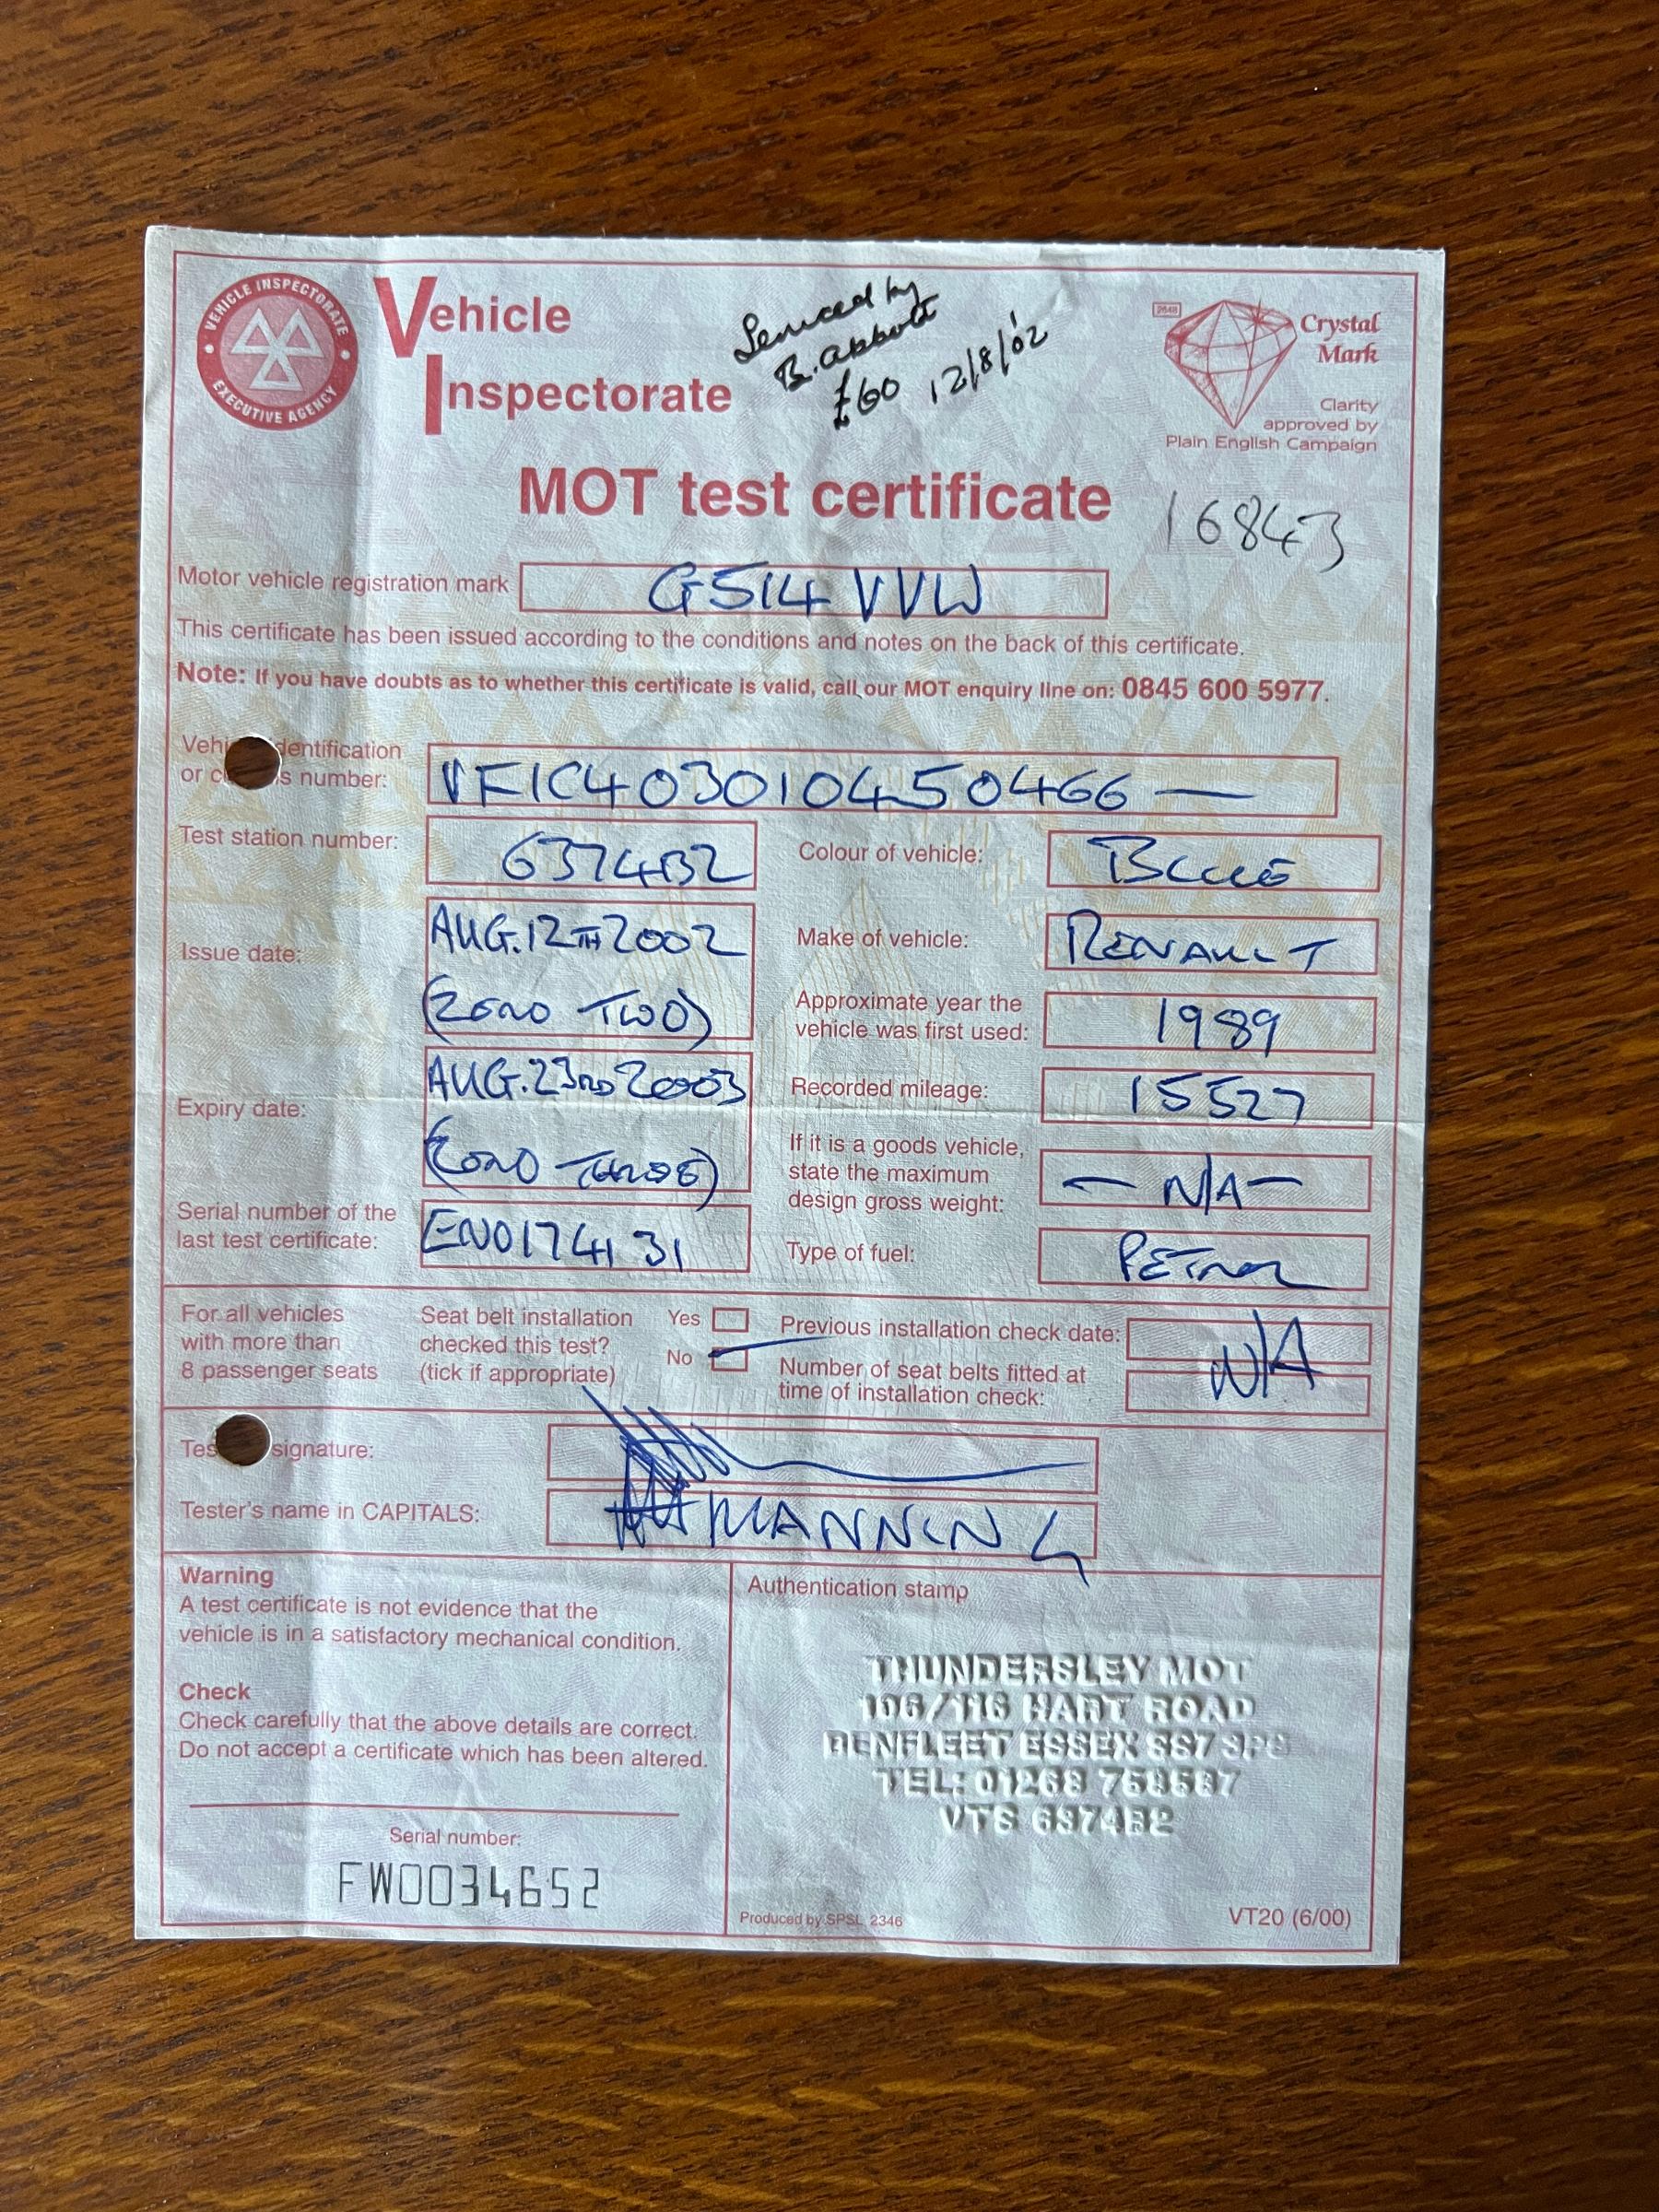 VEHICLE INSPECTORATE
EXECUTIVE AGENCY
Vehicle
Inspectorate
Serviced by
B. Abbott
£60 12/8/02
2648
Crystal
Mark
Clarity
approved by
Plain English Campaign
MOT test certificate
16843
Motor vehicle registration mark G514 VVW
This certificate has been issued according to the conditions and notes on the back of this certificate.
Note: If you have doubts as to whether this certificate is valid, call our MOT enquiry line on: 0845 600 5977.
Vehi dentification
or c s number: VF1C4030104504 66 —
Test station number: 6374B2
Colour of vehicle: BLUE
Issue date: AUG. 12TH 2002
(ZERO TWO)
Make of vehicle: RENAULT
Approximate year the
vehicle was first used: 1989
Expiry date: AUG. 23RD 2003
(ZERO THREE)
Recorded mileage: 15527
If it is a goods vehicle,
state the maximum
design gross weight: — N/A —
Serial number of the
last test certificate: EN0174131
Type of fuel: PETROL
For all vehicles
with more than
8 passenger seats
Seat belt installation
checked this test?
(tick if appropriate)
Yes
No
Previous installation check date: N/A
Number of seat belts fitted at
time of installation check:
Tes signature:
Tester's name in CAPITALS: MANNING
Warning
A test certificate is not evidence that the
vehicle is in a satisfactory mechanical condition.
Check
Check carefully that the above details are correct.
Do not accept a certificate which has been altered.
Serial number:
FW0034652
Authentication stamp
THUNDERSLEY MOT
106/116 HART ROAD
BENFLEET ESSEX SS7
TEL: 01268
VTS 6374B2
Produced by SPSL 2346
VT20 (6/00)